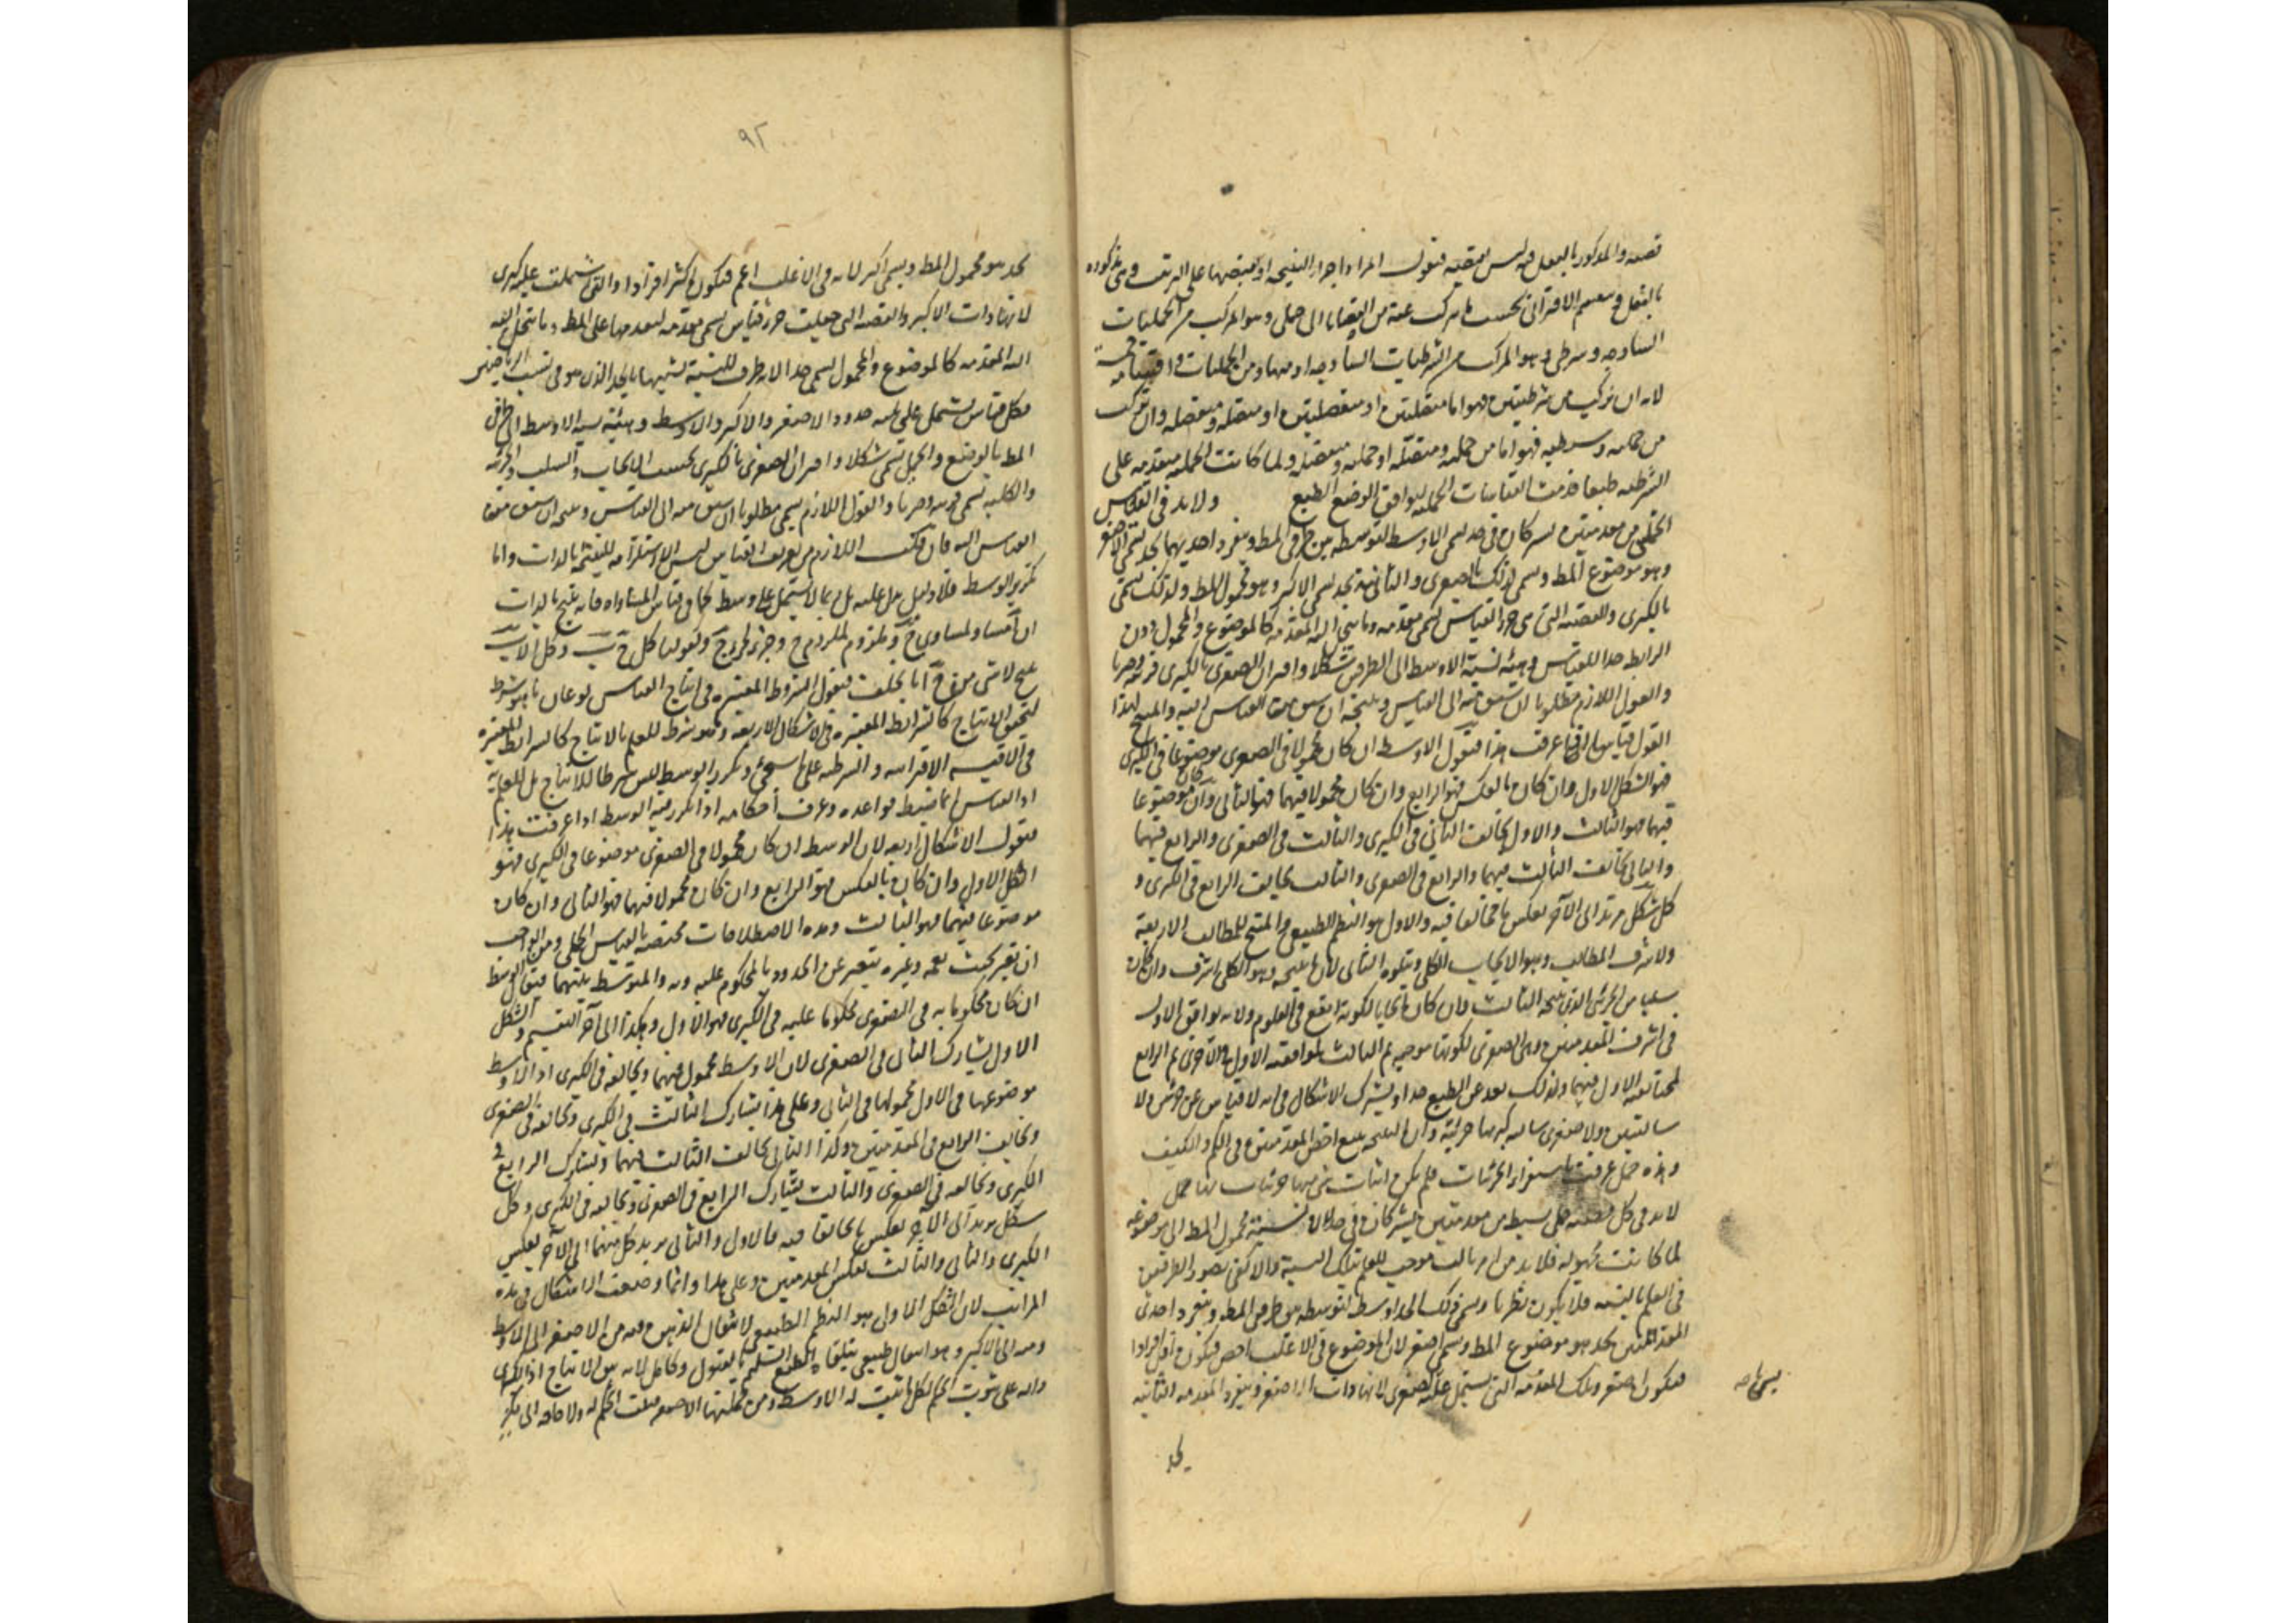 قضية والمذكور بالفعل فيه ليس بقضية فنقول المراد اجزاء النتيجة او نقيضها على الترتيب وهى مذكورة
بالفعل وينقسم الاقترانى بحسب ما يتركب عنه من القضايا الى حملى وهو المركب من الحمليات
الساذجة وشرطى وهو المركب من الشرطيات الساذجة او منها ومن الحمليات واقسامه خمسة
لانه ان تركب من شرطيتين فهو اما متصلتين او منفصلتين او متصلة ومنفصلة وان تركب
من حملية وشرطية فهو اما من حملية ومتصلة او حملية ومنفصلة ولما كانت الحملية متقدمة على
الشرطية طبعا قدمت القياسات الحملية ليوافق الوضع الطبع ولابد فى القياس
الحملى من مقدمتين تشتركان فى حد يسمى الاوسط لتوسطه بين طرفى المط وينفرد احديهما بحد يسمى الاصغر
وهو موضوع المط وسمى لذلك بالصغرى والثانية بحد يسمى الاكبر وهو محمول المط ولذلك تسمى
بالكبرى والقضية التى هى جزء القياس تسمى مقدمة وما ينحل اليه المقدمة كالموضوع والمحمول دون
الرابطة حدا للقياس وهيئة نسبة الاوسط الى الطرفين شكلا واقتران الصغرى بالكبرى قرينة وضربا
والقول اللازم مطلوبا ان سبق منه الى القياس ونتيجة ان سبق من القياس اليه والمنتج لهذا
القول قياسا اذا عرفت هذا فنقول الاوسط ان كان محمولا فى الصغرى موضوعا فى الكبرى
فهو الشكل الاول وان كان بالعكس فهو الرابع وان كان محمولا فيهما فهو الثانى وان كان موضوعا
فيهما فهو الثالث والاول يخالف الثانى فى الكبرى والثالث فى الصغرى والرابع فيهما
والثانى يخالف الثالث فيهما والرابع فى الصغرى والثالث يخالف الرابع فى الكبرى و
كل شكل يرتد الى الآخر بعكس ما تخالفا فيه والاول هو النظم الطبيعى والمنتج للمطالب الاربعة
ولاشرف المطالب وهو الايجاب الكلى ويتلوه الثانى لان ما ينتجه وهو الكلى اشرف وان كان
سلبا من الجزئى الذى ينتجه الثالث وان كان ايجابا لكونه انفع فى العلوم ولانه يوافق الاول
فى اشرف المقدمتين وهى الصغرى لكونها موجبة ثم الثالث لموافقته الاول فى الاخرى ثم الرابع
لمخالفته الاول فيهما ولذلك بعد عن الطبع جدا ويشترك الاشكال فى انه لا قياس عن جزئيتين ولا
سالبتين ولا صغرى سالبة كبراها جزئية وان النتيجة تتبع اخس المقدمتين فى الكم والكيف
وهذه جمل عرفت باستقراء الجزئيات فلم يمكن اثبات شئ منها
لابد فى كل قضية حملى بسيط من مقدمتين تشتركان فى حد لان نسبة محمول المط الى موضوعه
لما كانت مجهولة فلابد من امر ثالث موجب للعلم بتلك النسبة والا لكفى تصور الطرفين
فى العلم بالنسبة فلا يكون نظريا وسمى ذلك الحد اوسط لتوسطه بين طرفى المط وينفرد احدى
المقدمتين بحد هو موضوع المط وسمى اصغر لان الموضوع فى الاغلب اخص فيكون اقل افرادا
فيكون اصغر وتلك المقدمة التى يشتمل عليه الصغرى لانها ذات الاصغر وينفرد المقدمة الثانية
بحد
٩٢
بحد هو محمول المط ويسمى اكبر لانه فى الاغلب اعم فيكون اكثر افرادا والتى اشتملت عليه كبرى
لانها ذات الاكبر والقضية التى جعلت جزء قياس تسمى مقدمة لتقدمها على المط وما ينحل اليه
اليه المقدمة كالموضوع والمحمول يسمى حدا لانه طرف للنسبة تشبيها بالحد الذى هو فى نسب الرياضيين
فكل قياس يشتمل على ثلثة حدود الاصغر والاكبر والاوسط وهيئة نسبة الاوسط الى طرفى
المط بالوضع والحمل تسمى شكلا واقتران الصغرى بالكبرى بحسب الايجاب والسلب والجزئية
والكلية تسمى قرينة وضربا والقول اللازم يسمى مطلوبا ان سبق منه الى القياس ونتيجة ان سبق من
القياس اليه فان قلت اللازم من تعريف القياس ليس الا استلزامه للنتيجة بالذات واما
تكرر الوسط فلا دليل يدل عليه بل ربما لا يشتمل على وسط كما فى قياس المساواة فانه ينتج بالذات
ان آ مساو لمساوى ج وملزوم لملزوم ج وجزء لجزء ج وكقولنا كل ج ب وكل
ينتج لا شئ من ج آ بالخلف فنقول الشروط المعتبرة فى انتاج القياس نوعان ما هو شرط
لتحقق الانتاج كالشرائط المعتبرة فى الاشكال الاربعة وما هو شرط للعلم بالانتاج كالشرائط المعتبرة
فى الاقيسة الاقترانية والشرطية على ما سيجئ وتكرر الوسط ليس شرطا للانتاج بل للعلم به
اذ القياس انما ضبط قواعده وعرف احكامه اذا تكرر فيه الوسط اذا عرفت هذا
فنقول الاشكال اربعة لان الوسط ان كان محمولا فى الصغرى موضوعا فى الكبرى فهو
الشكل الاول وان كان بالعكس فهو الرابع وان كان محمولا فيهما فهو الثانى وان كان
موضوعا فيهما فهو الثالث وهذه الاصطلاحات مختصة بالقياس الحملى ومن الواجب
ان تعتبر بحيث تعمه وغيره فيعبر عن الحدود بالمحكوم عليه وبه والمتوسط بينهما فيقال الوسط
ان كان محكوما به فى الصغرى محكوما عليه فى الكبرى فهو الاول وهكذا الى آخر التقسيم والشكل
الاول يشارك الثانى فى الصغرى لان الاوسط محمول فيهما ويخالفه فى الكبرى اذ الاوسط
موضوعها فى الاول محمولها فى الثانى وعلى هذا يشارك الثالث فى الكبرى ويخالفه فى الصغرى
ويخالف الرابع فى المقدمتين وكذا الثانى يخالف الثالث فيهما ويشارك الرابع فى
الكبرى ويخالفه فى الصغرى والثالث يشارك الرابع فى الصغرى ويخالفه فى الكبرى وكل
شكل يرتد الى الآخر بعكس ما تخالفا فيه فالاول والثانى يرتد كل منهما الى الآخر بعكس
الكبرى والثانى والثالث بعكس المقدمتين وعلى هذا وانما وضعت الاشكال فى هذه
المراتب لان الشكل الاول هو النظم الطبيعى لانتقال الذهن فيه من الاصغر الى الاوسط
ومنه الى الاكبر وهو انتقال طبيعى يتلقاه الطبع السليم بالقبول وكامل لانه بين الانتاج اذ الكبرى
دالة على ثبوت الحكم لكل ما ثبت له الاوسط ومن جملتها الاصغر فيثبت الحكم له ولا حاجة الى فكر